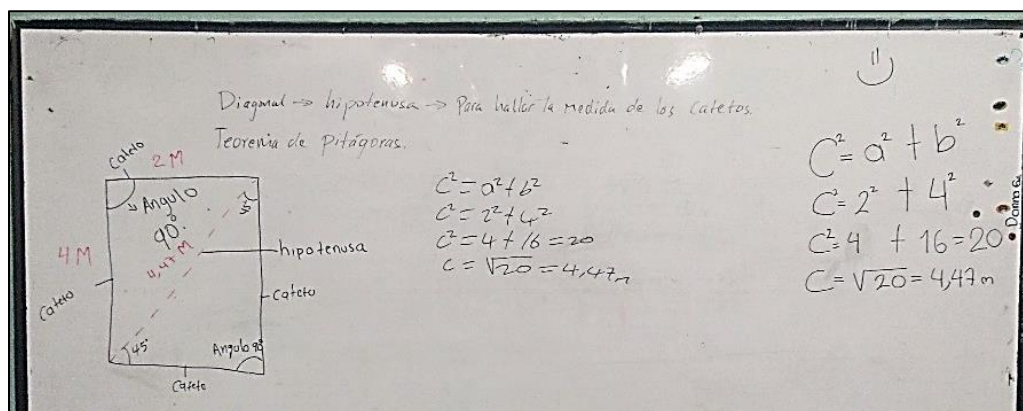 Diagonal → hipotenusa → Para hallar la medida de los catetos.
Teorema de Pitágoras.
Cateto
2 M
Angulo
90°
4,47 M
4 M
hipotenusa
Cateto
Cateto
45°
Angulo 90°
Cateto
C² = a² + b²
C² = 2² + 4²
C² = 4 + 16 = 20
C = √20 = 4,47m
C² = a² + b²
C² = 2² + 4²
C² = 4 + 16 = 20
C = √20 = 4,47 m